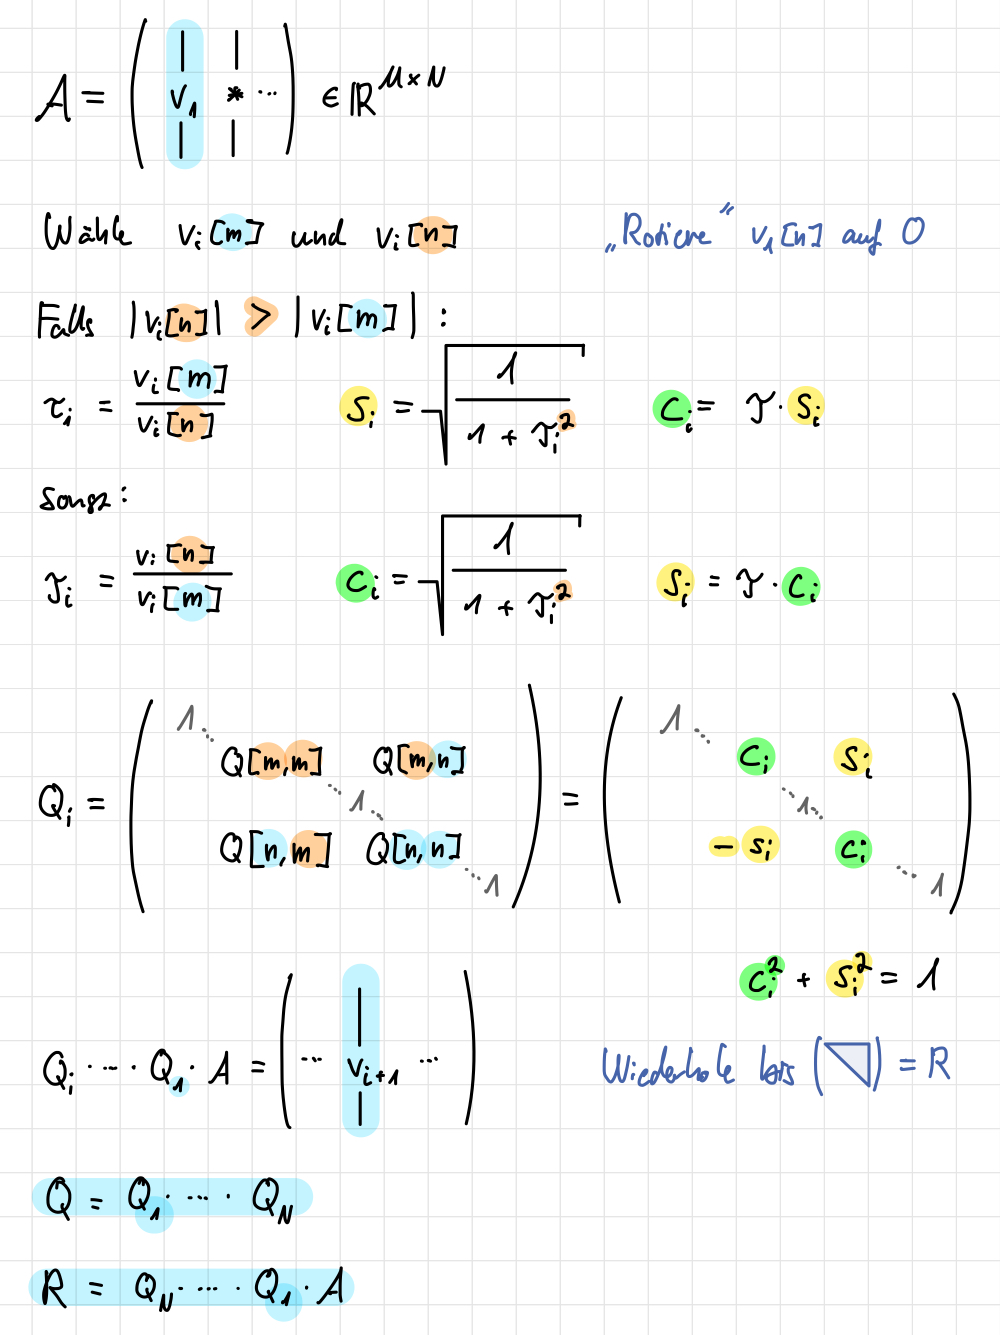 A = ( | v₁ | | * | ⋯ ) ∈ ℝ^{M×N}
Wähle vᵢ[m] und vᵢ[n] „Rotiere“ v₁[n] auf 0
Falls |vᵢ[n]| > |vᵢ[m]| :
τᵢ = vᵢ[m] / vᵢ[n] sᵢ = √(1 / (1 + τᵢ²)) cᵢ = τ · sᵢ
sonst :
τᵢ = vᵢ[n] / vᵢ[m] cᵢ = √(1 / (1 + τᵢ²)) sᵢ = τ · cᵢ
1 ⋱ 1 ⋱
Q[m,m] Q[m,n] cᵢ sᵢ
Qᵢ = ( ⋱ 1 ⋱ ) = ( ⋱ 1 ⋱ )
Q[n,m] Q[n,n] -sᵢ cᵢ
⋱ 1 ⋱ 1
cᵢ² + sᵢ² = 1
Qᵢ · ⋯ · Q₁ · A = ( ⋯ | vᵢ₊₁ | ⋯ ) Wiederhole bis ( ) = R
Q = Q₁ · ⋯ · Q_N
R = Q_N · ⋯ · Q₁ · A